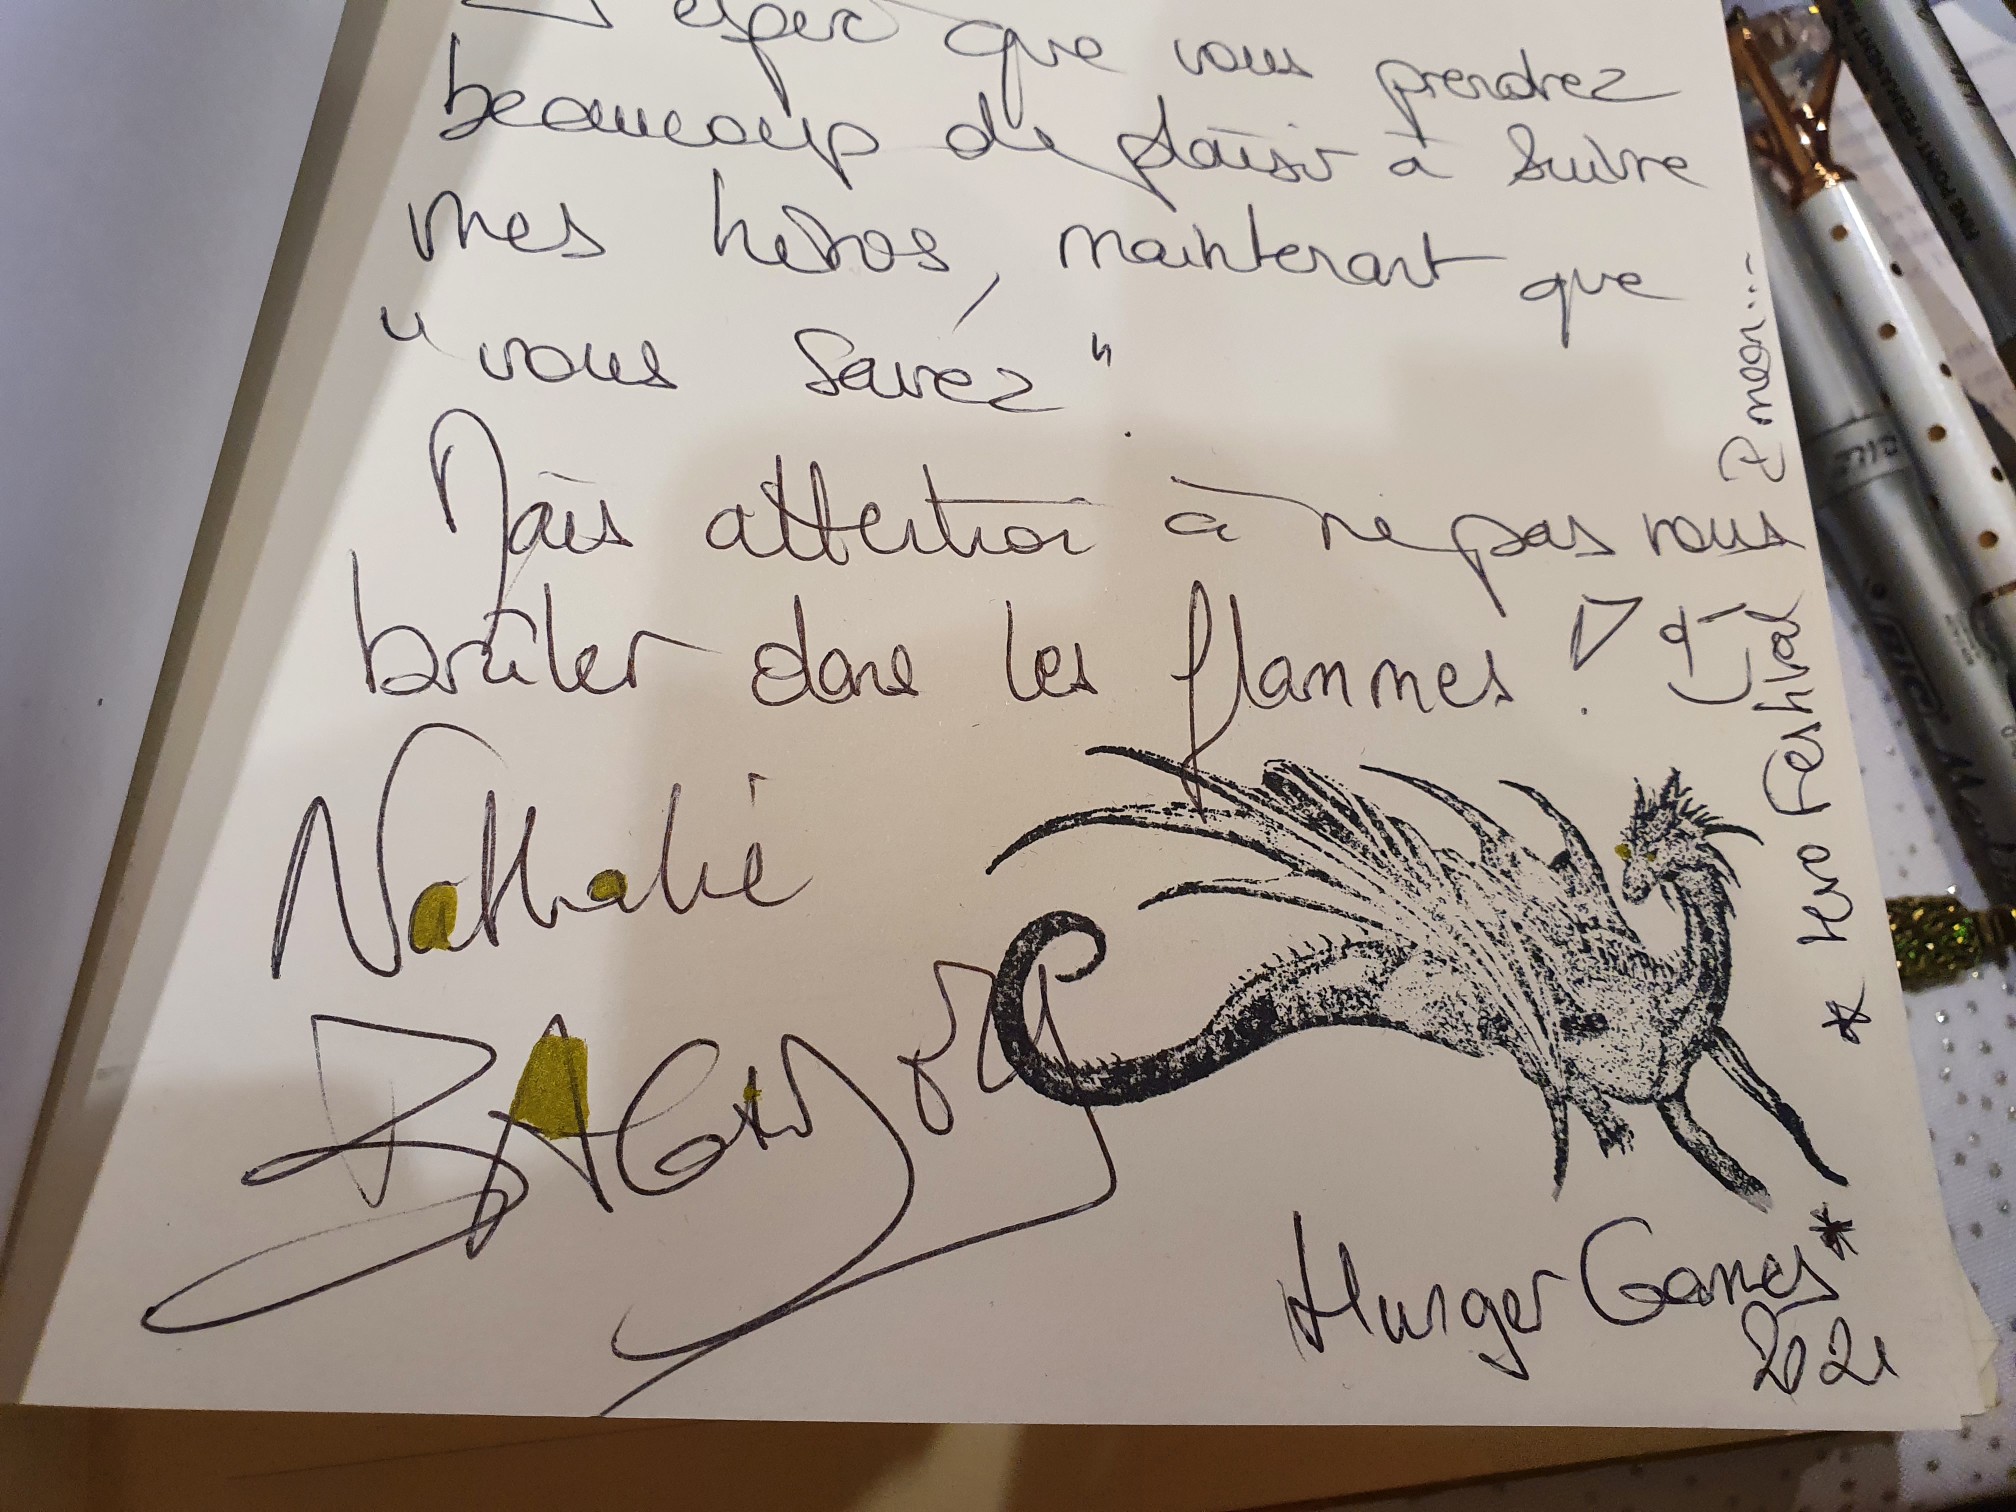 J'espère que vous prendrez
beaucoup de plaisir à suivre
mes héros, maintenant que
"vous savez".
Mais attention à ne pas vous
brûler dans les flammes !
Nathalie
Hunger Games*
2021
* Hero Festival I mean...
FINE POINT • PERMANENT M
BIC
BIC